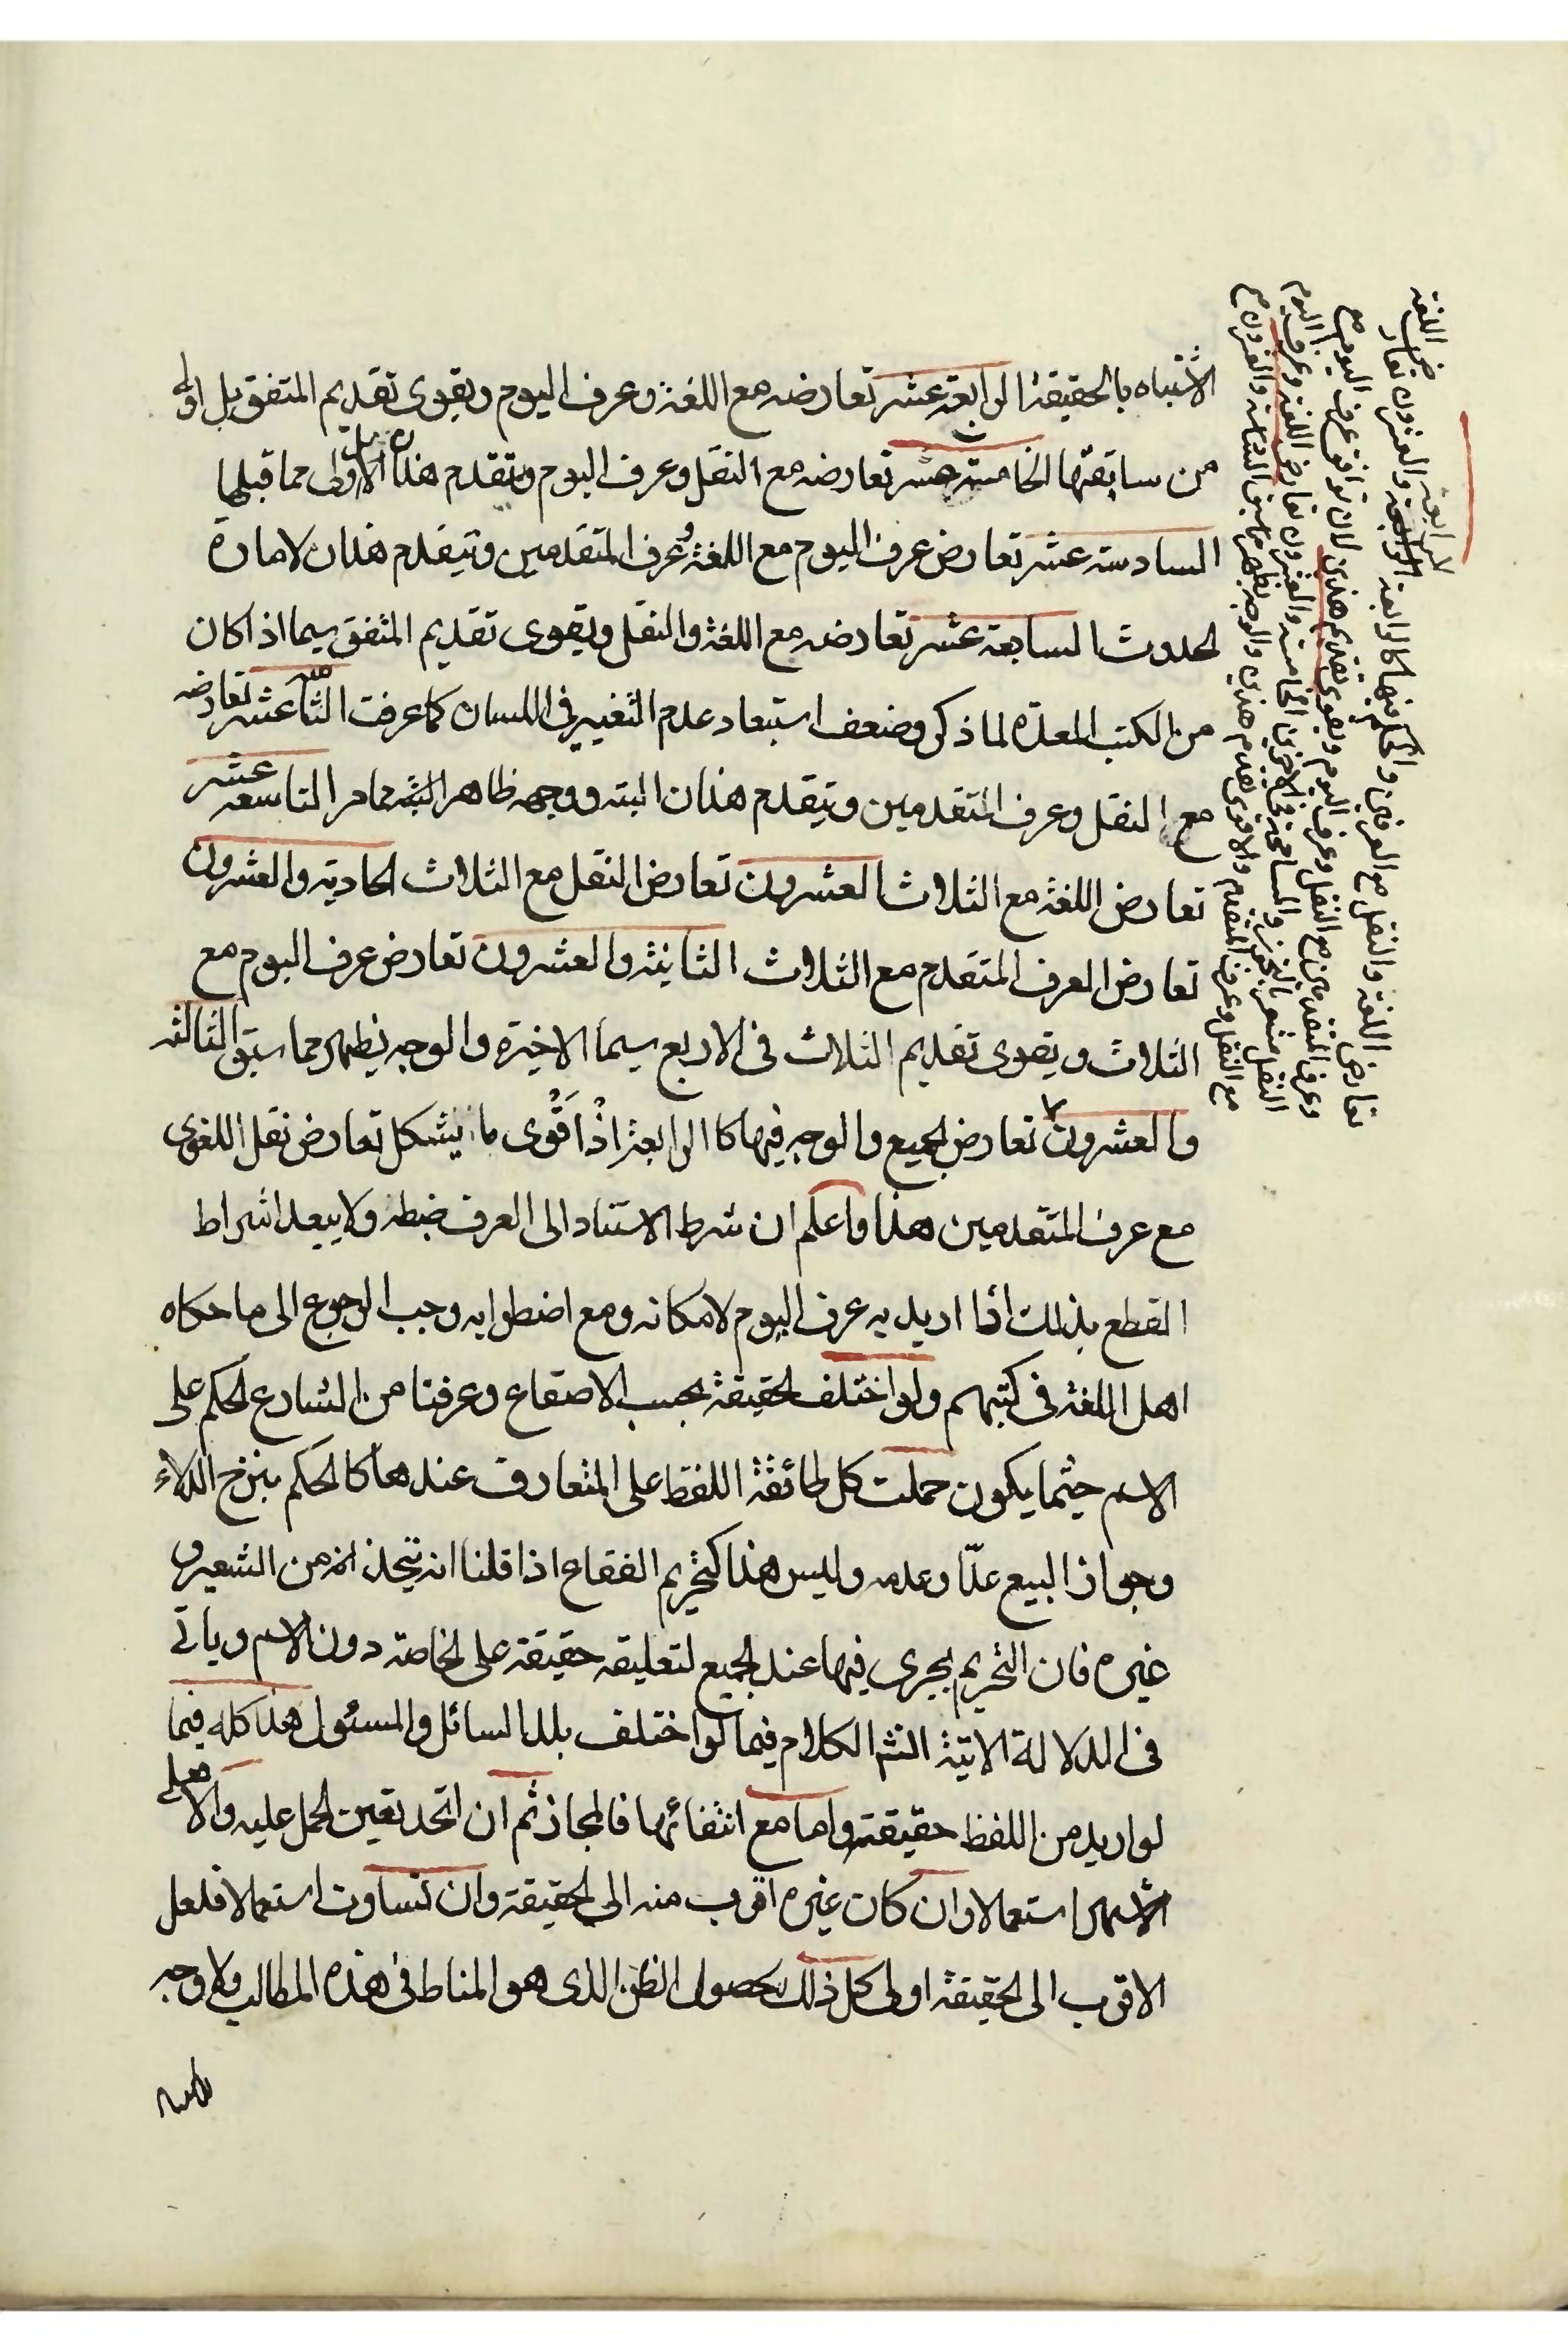 الاشتباه بالحقيقة الرابعة عشر تعارضه مع اللغة وعرف اليوم ويقوى تقديم المتفق بل اولى
من سابقتها الخامسة عشر تعارضه مع النقل وعرف اليوم ويتقدم هذان بل الاولى مما قبلها
السادسة عشر تعارض عرف اليوم مع اللغة وعرف المتقدمين ويتقدم هذان لامارة
الحدوث السابعة عشر تعارضه مع اللغة والنقل ويقوى تقديم المتفق سيما اذا كان
من الكتب المعدة لما ذكر وضعف استبعاد عدم التغيير في اللسان كما عرفت الثامنة عشر تعارضه
مع النقل وعرف المتقدمين ويتقدم هذان البته ووجهه ظاهر البته مما مر التاسعة عشر
تعارض اللغة مع الثلاث العشرون تعارض النقل مع الثلاث الحادية والعشرون
تعارض العرف المتقدم مع الثلاث الثانية والعشرون تعارض عرف اليوم مع
الثلاث ويقوى تقديم الثلاث في الاربع سيما الاخيرة والوجه يظهر مما سبق الثالثة
والعشرون تعارض الجميع والوجه فيها كالرابعة اذ اقوى ما يشكل تعارض نقل اللغوي
مع عرف المتقدمين هذا واعلم ان شرط الاستناد الى العرف ضبطه ولا يبعد اشراط
القطع بذلك اذا اريد به عرف اليوم لامكانه ومع اضطرابه وجب الرجوع الى ما حكاه
اهل اللغة في كتبهم ولو اختلف الحقيقة بحسب الاصقاع وعرفنا من الشارع الحكم على
الاسم حيثما يكون حملت كل طائفة اللفظ على المتعارف عندها كالحكم بنزح الدلاء
وجواز البيع عدّا وعدمه وليس هذا كتحريم الفقاع اذا قلنا انه يتخذ انه من الشعير و
غيره فان التحريم يجرى فيها عند الجميع لتعليقه حقيقة على الخاصة دون الاسم وياتي
في الدلالة الاتية انشا الكلام فيما لو اختلف بلد السائل والمسئول هذا كله فيما
لو اريد من اللفظ حقيقته واما مع انتفائها فالمجاز ثم ان اتحد تعين الحمل عليه والا فعلى
الاشهر استعمالا وان كان غيره اقرب منه الى الحقيقة وان تساوت استعمالا فلعل
الاقرب الى الحقيقة اولى كل ذلك لحصول الظن الذى هو المناط في هذه المطالب ولا وجه
الرابعة والعشرون تعارض اللغة
تعارض اللغة والنقل مع العرفين والحكم فيها كالرابعة
وعرف المتقدمين مع النقل وعرف اليوم ويقوى تقديم هذين لان توافق عرف اليوم مع
النقل مشعر والعشرون تعارض اللغة وعرف اليوم
مع النقل وعرف المتقدم والاقوى تقدم هذين والوجه يظهر مما سبق